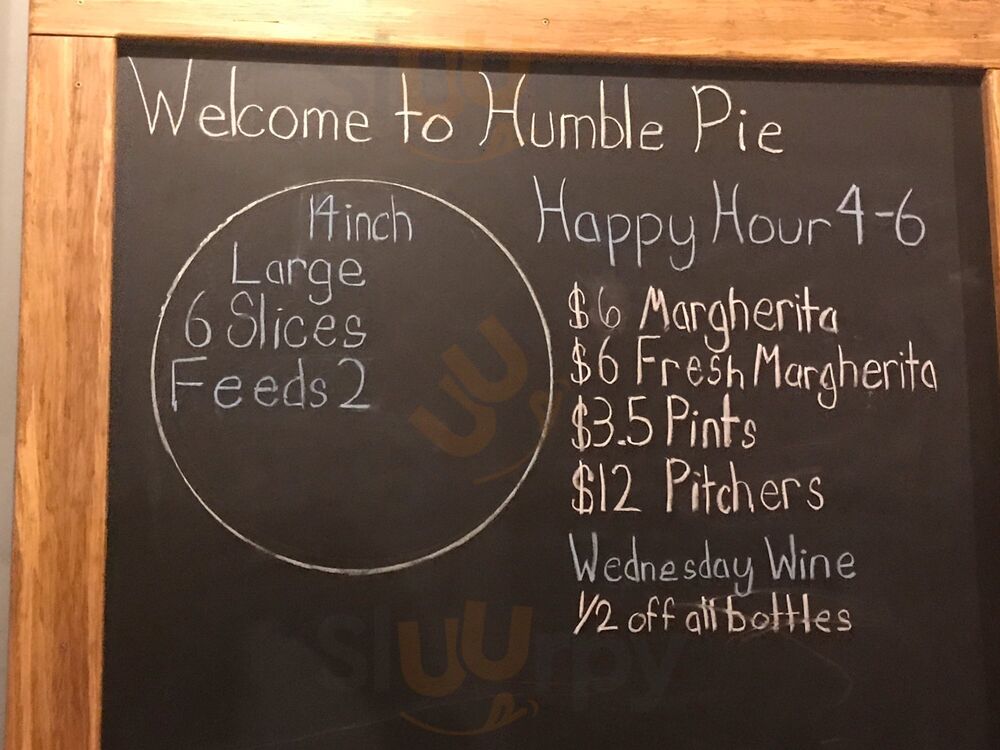 Welcome to Humble Pie
14 inch
Large
6 Slices
Feeds 2
Happy Hour 4-6
$6 Margherita
$6 Fresh Margherita
$3.5 Pints
$12 Pitchers
Wednesday Wine
1/2 off all bottles
Slurpy